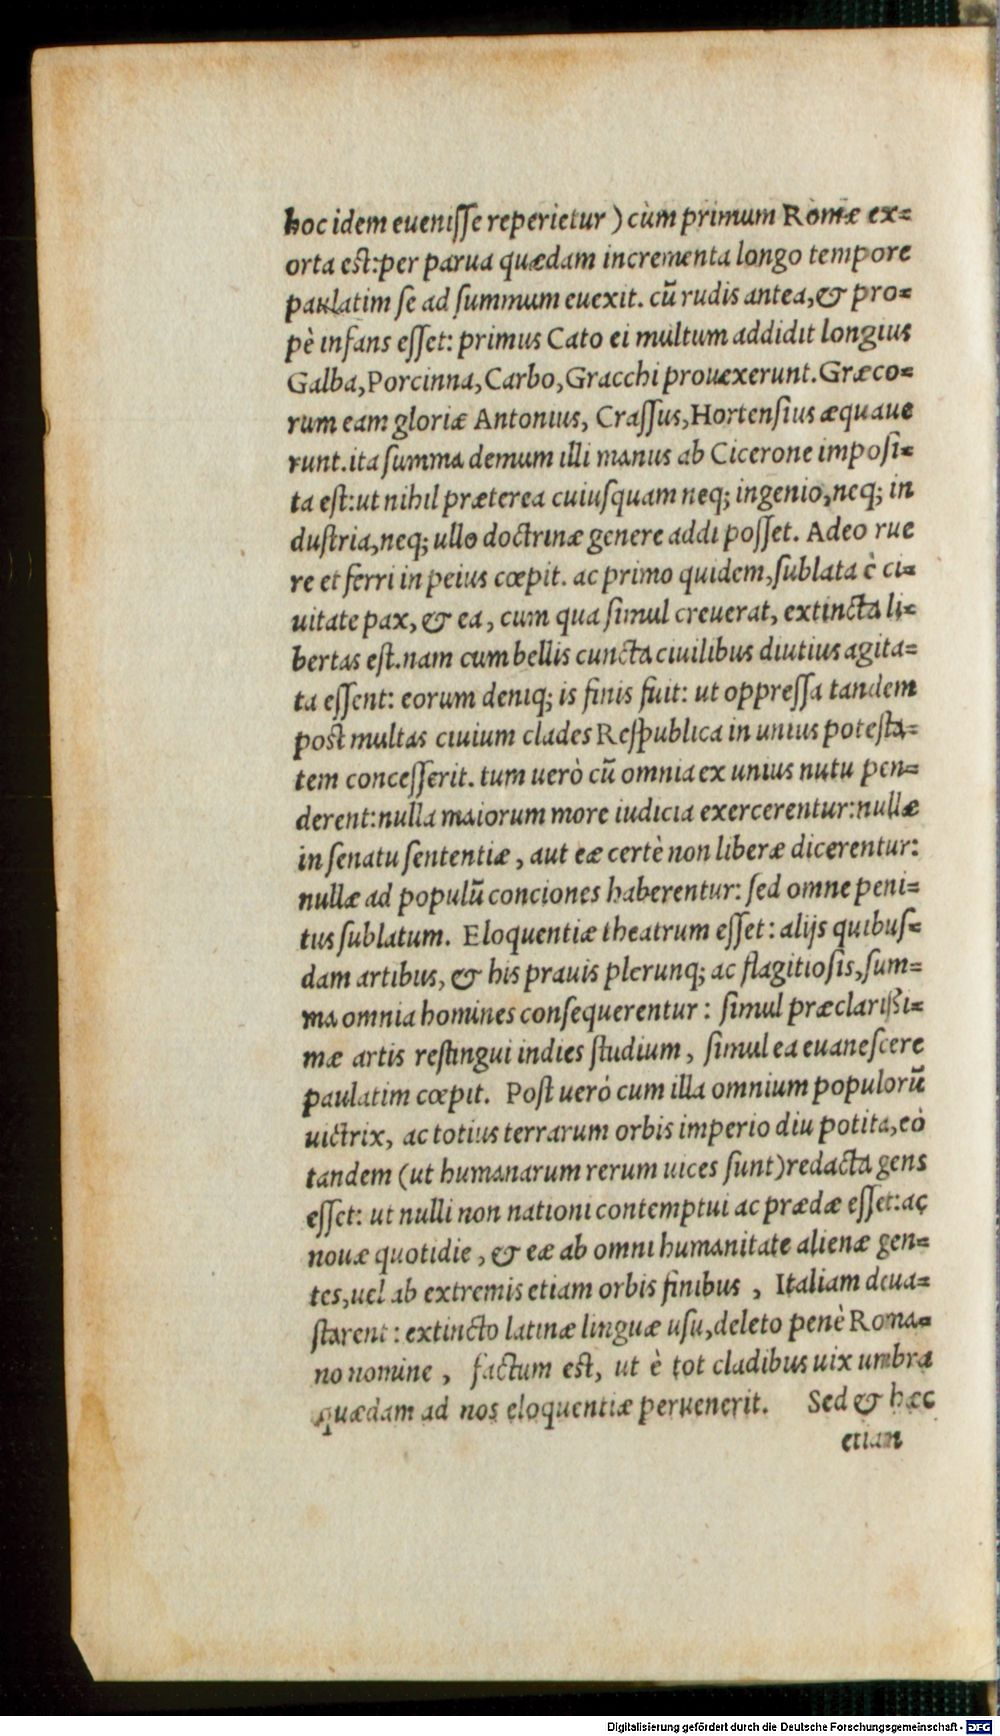 hoc idem euenisse reperietur ) cùm primum Romæ ex=
orta est:per parua quædam incrementa longo tempore
paulatim se ad summum euexit. cũ rudis antea,& pro=
pè infans esset: primus Cato ei multum addidit longius
Galba,Porcinna,Carbo,Gracchi prouexerunt.Græco=
rum eam gloriæ Antonius, Crassus,Hortensius æquaue
runt.ita summa demum illi manus ab Cicerone imposi=
ta est:ut nihil præterea cuiusquam neq; ingenio,neq; in
dustria,neq; ullo doctrinæ genere addi posset. Adeo rue
re et ferri in peius cœpit. ac primo quidem,sublata è ci=
uitate pax, & ea, cum qua simul creuerat, extincta li=
bertas est.nam cum bellis cuncta ciuilibus diutius agita=
ta essent: eorum deniq; is finis fuit: ut oppressa tandem
post multas ciuium clades Respublica in unius potesta=
tem concesserit. tum uerò cũ omnia ex unius nutu pen=
derent:nulla maiorum more iudicia exercerentur:nullæ
in senatu sententiæ, aut eæ certè non liberæ dicerentur:
nullæ ad populũ conciones haberentur: sed omne peni=
tus sublatum. Eloquentiæ theatrum esset: alijs quibus=
dam artibus, & his prauis plerunq; ac flagitiosis,sum=
ma omnia homines consequerentur: simul præclarißi=
mæ artis restingui indies studium, simul ea euanescere
paulatim cœpit. Post ueró cum illa omnium populorũ
uictrix, ac totius terrarum orbis imperio diu potita,eò
tandem (ut humanarum rerum uices sunt)redacta gens
esset: ut nulli non nationi contemptui ac prædæ esset:ac
nouæ quotidie, & eæ ab omni humanitate alienæ gen=
tes,uel ab extremis etiam orbis finibus, Italiam deua=
starent: extincto latinæ linguæ usu,deleto penè Roma=
no nomine, factum est, ut è tot cladibus uix umbra
quædam ad nos eloquentiæ peruenerit. Sed & hæc
etiam
Digitalisierung gefördert durch die Deutsche Forschungsgemeinschaft - DFG